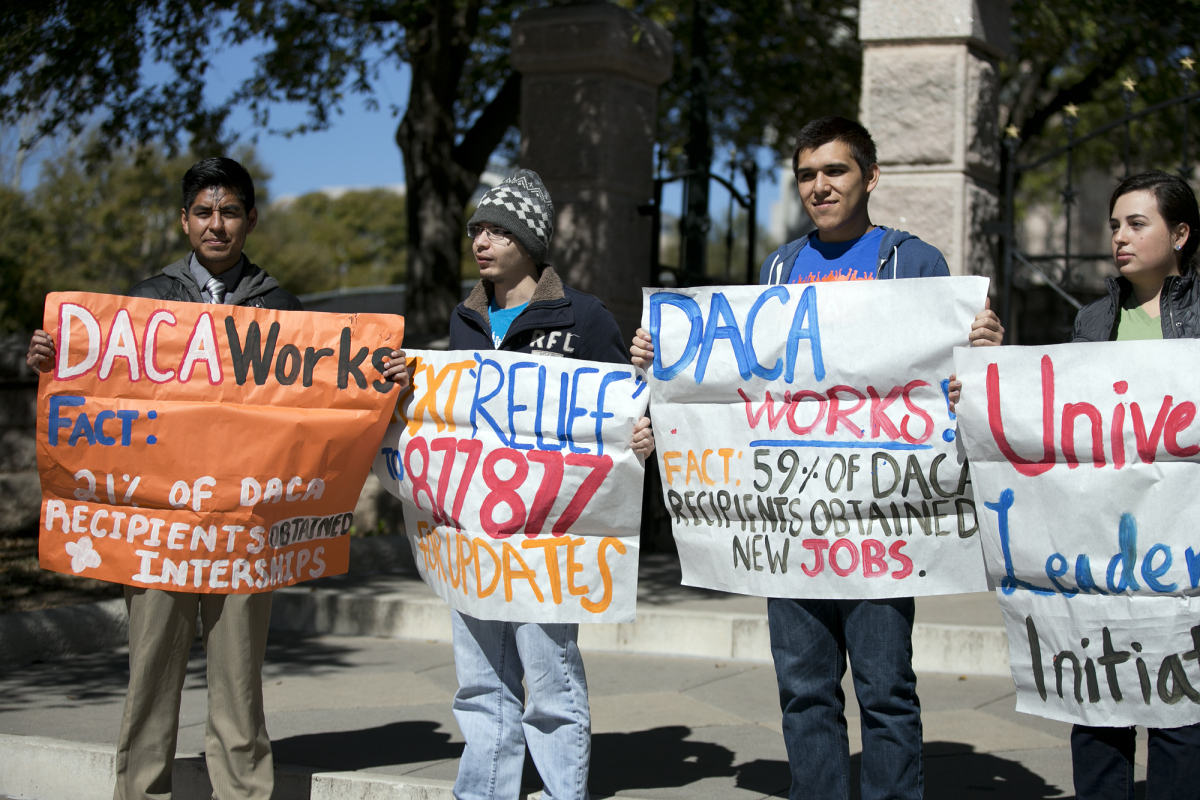 DACA Works
FACT:
21% OF DACA
RECIPIENTS OBTAINED
INTERSHIPS
RFL
EXT 'RELIEF'
TO 877877
FOR UPDATES
DACA
WORKS!
FACT: 59% OF DACA
RECIPIENTS OBTAINED
NEW JOBS.
Unive
Leader
Initiat